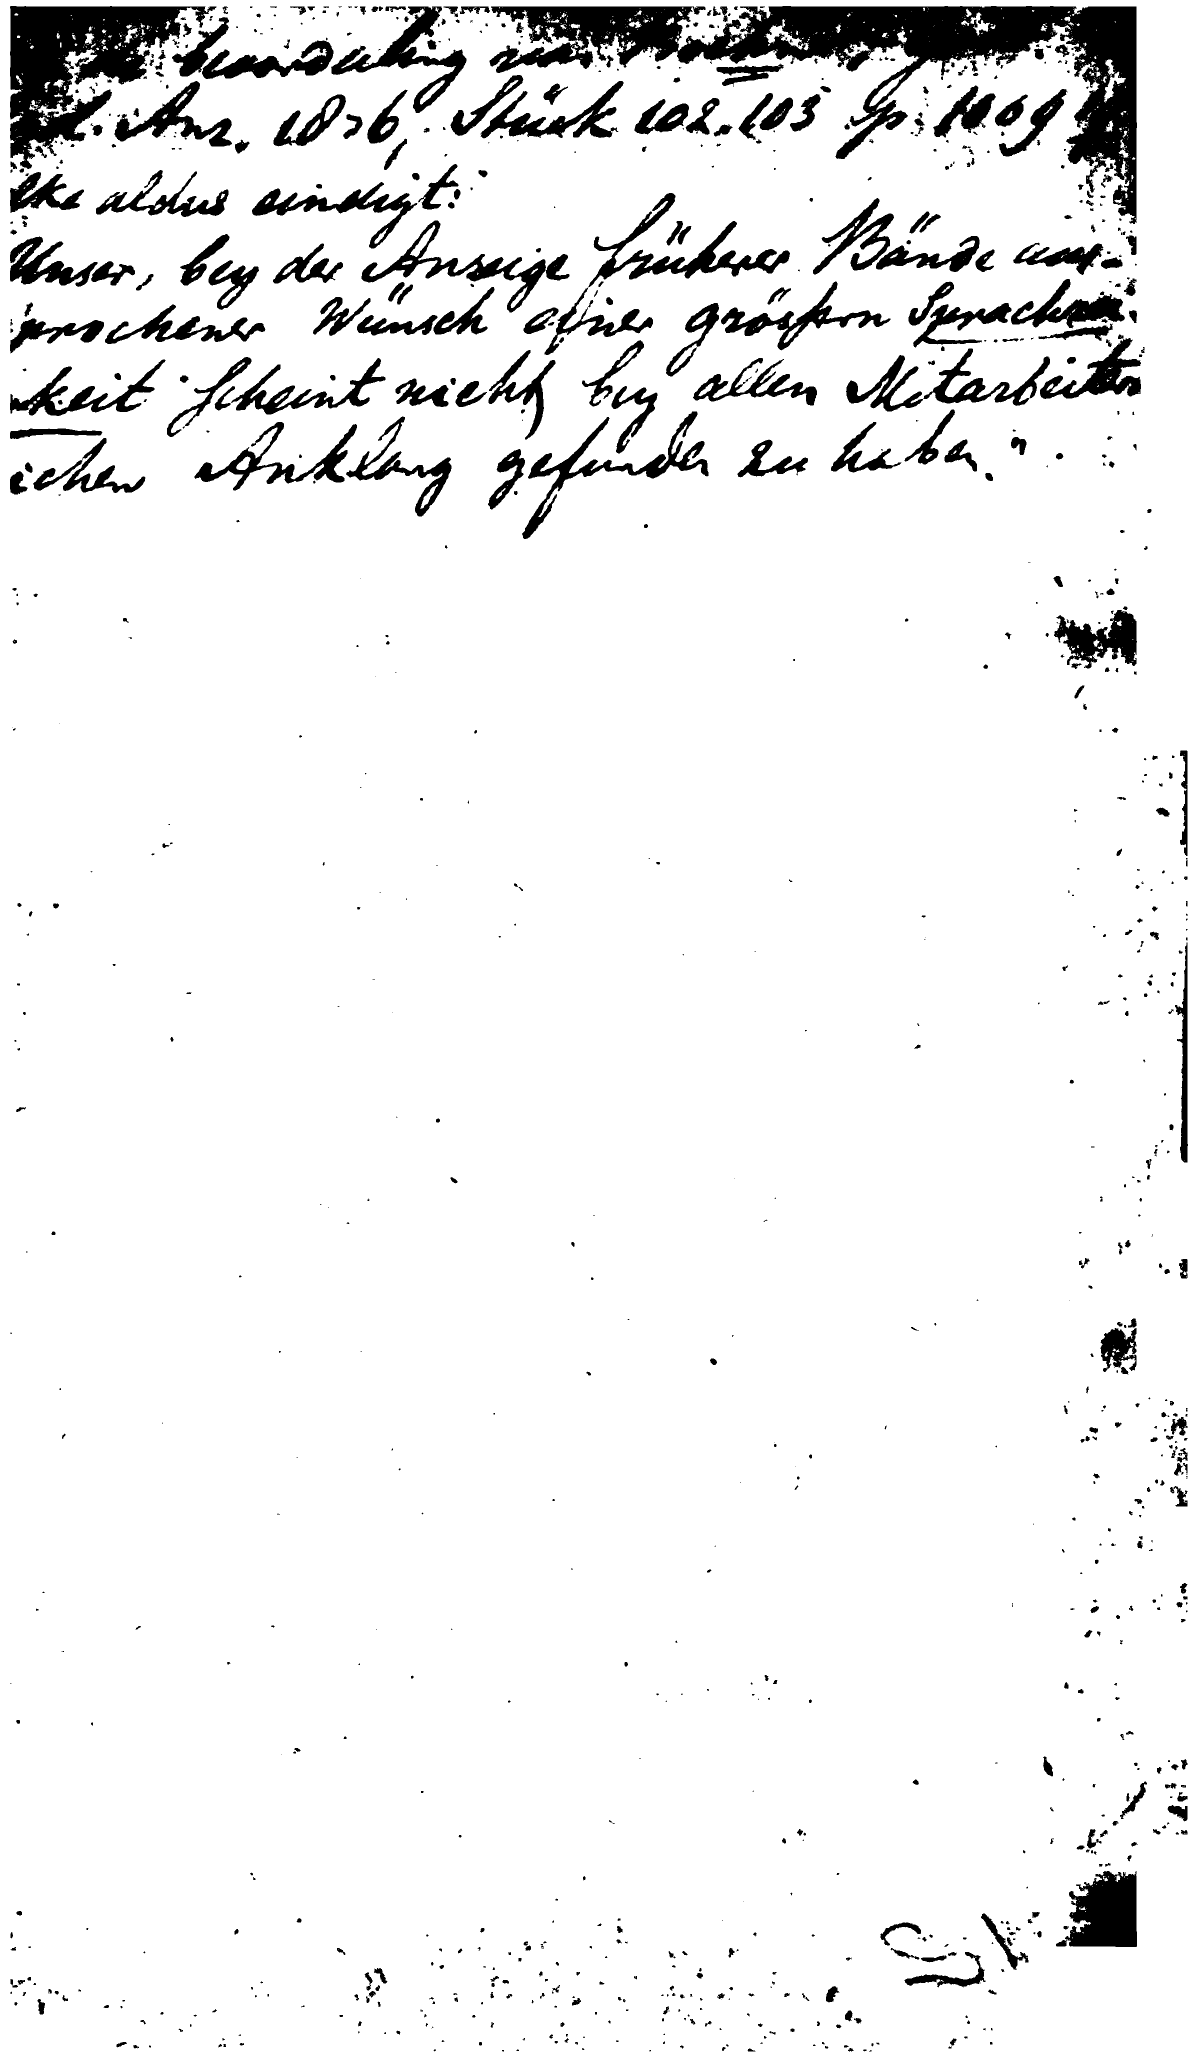 beoordeeling van
Anz. 1836, Stück 102.103 p. 1009
lke aldus eindigt:
Unser, bey der Anzeige früherer Bände aus-
prochener Wünsch einer größern Sprachrein-
keit scheint nicht bey allen Mitarbeitern
ichen Anklang gefunden zu haben."